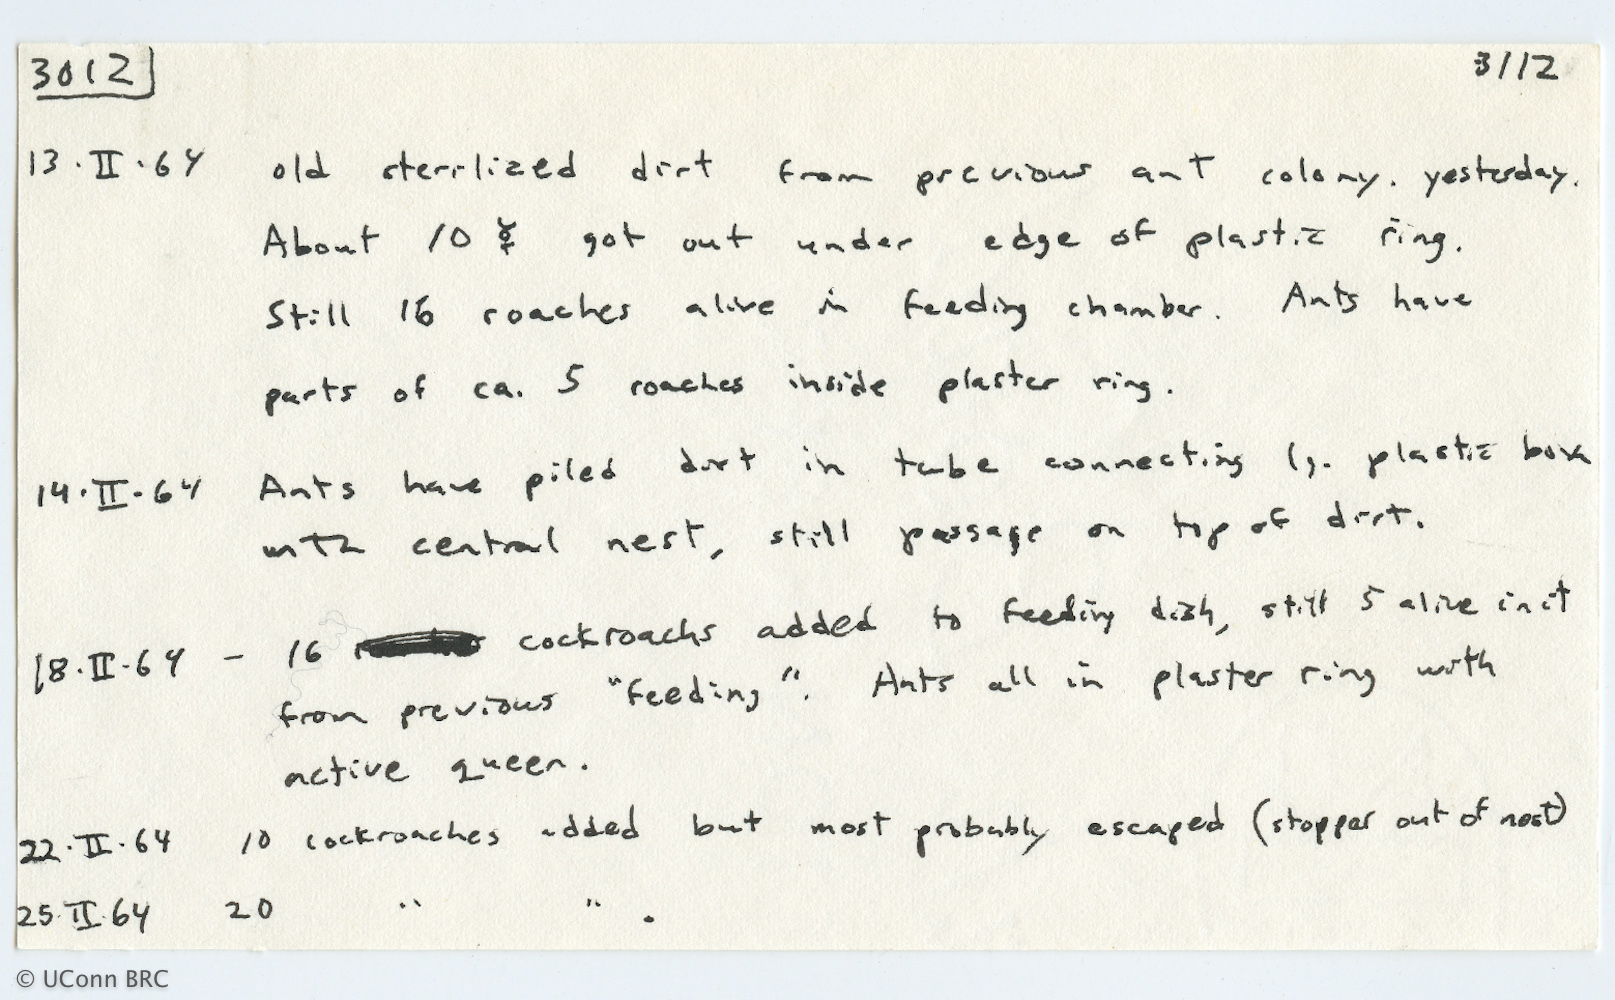 3012 3112
13·II·64 old sterilized dirt from previous ant colony. yesterday.
About 10 ☿ got out under edge of plastic ring.
Still 16 roaches alive in feeding chamber. Ants have
parts of ca. 5 roaches inside plaster ring.
14·II·64 Ants have piled dirt in tube connecting lg. plastic box
with central nest, still passage on top of dirt.
18·II·64 - 16 cockroachs added to feeding dish, still 5 alive in it
from previous "feeding". Ants all in plaster ring with
active queen.
22·II·64 10 cockroaches added but most probably escaped (stopper out of nest)
25·II·64 20 " " .
© UConn BRC